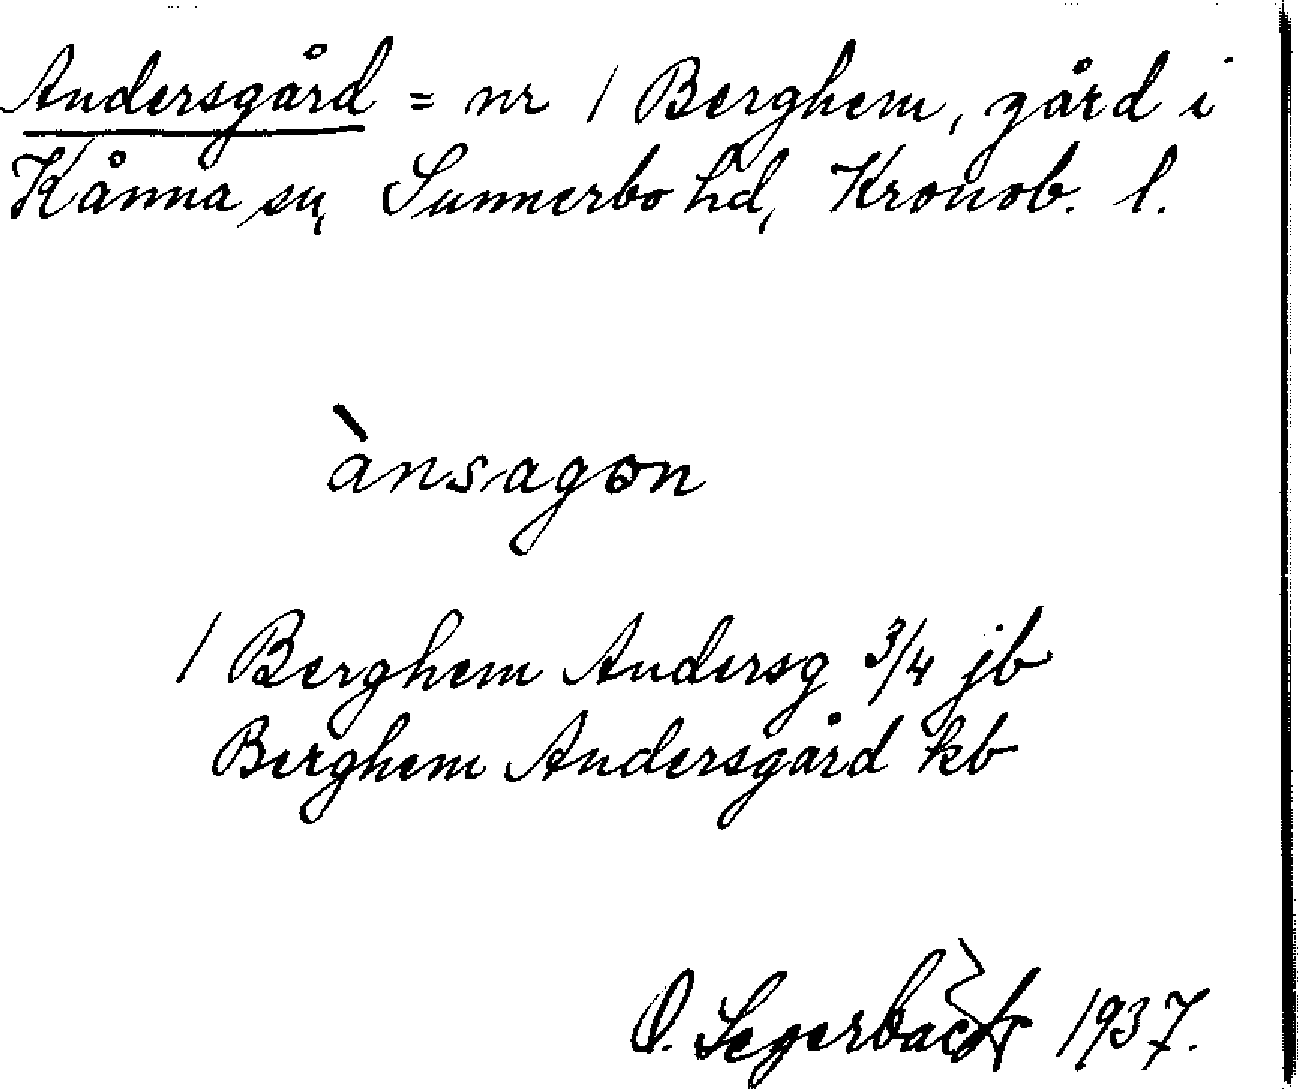 Andersgård = nr 1 Berghem, gård i
Kånna sn, Sunnerbo hd, Kronob. l.
ànsagon
1 Berghem Andersg 3/4 jb
Berghem Andersgård kb
O. Segerbäck 1937.